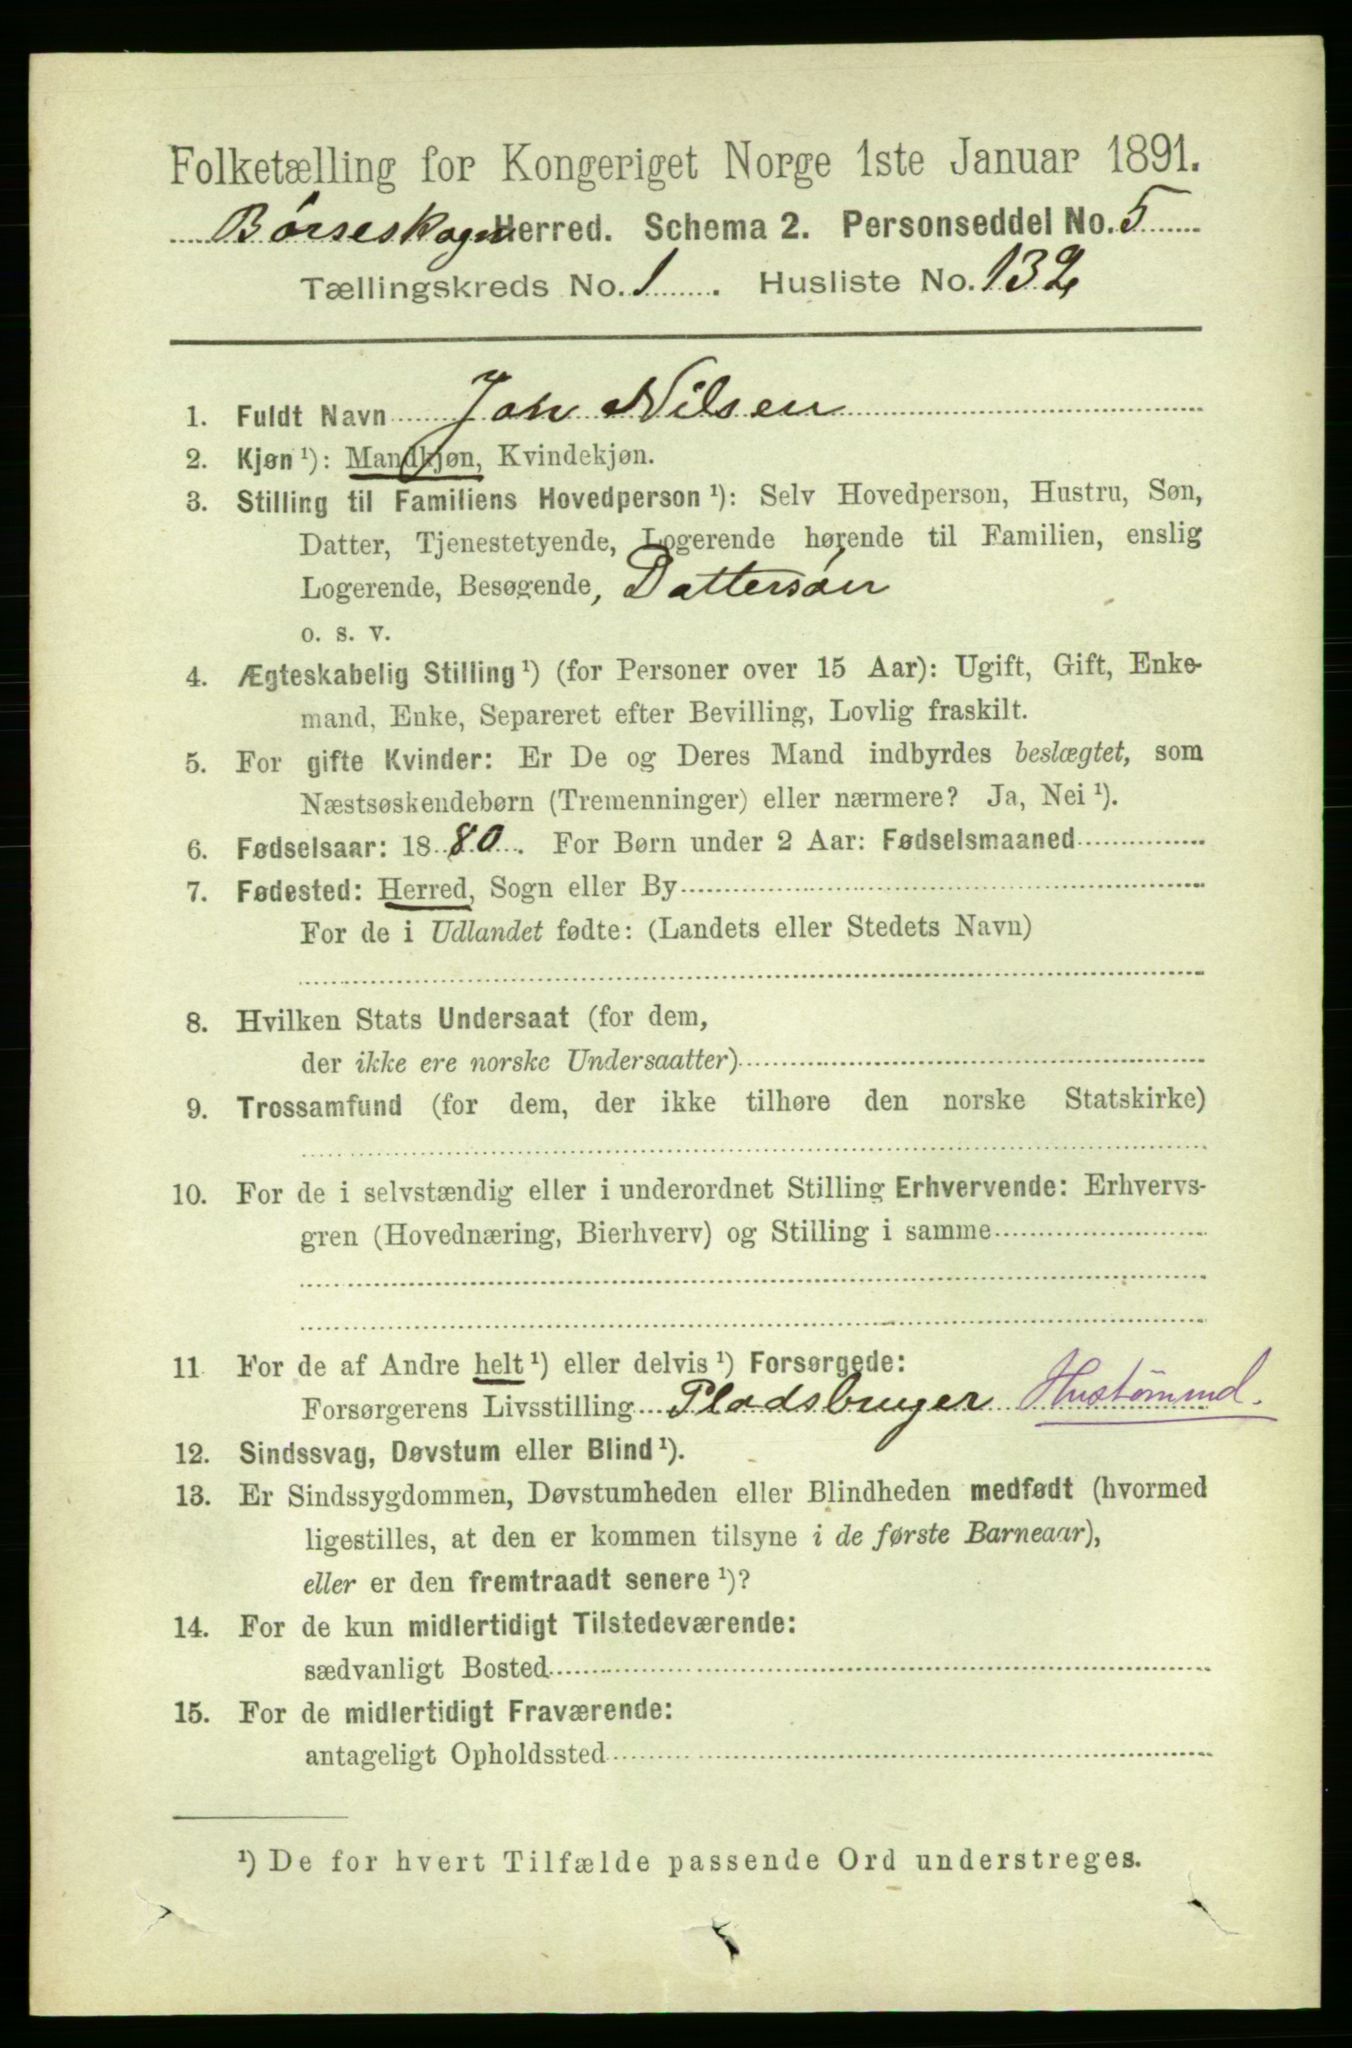 Folketælling for Kongeriget Norge 1ste Januar 1891.
Børseskogn Herred. Schema 2. Personseddel No. 5
Tællingskreds No. 1. Husliste No. 132
1. Fuldt Navn Jon Nilsen
2. Kjøn ¹): Mandkjøn, Kvindekjøn.
3. Stilling til Familiens Hovedperson ¹): Selv Hovedperson, Hustru, Søn,
Datter, Tjenestetyende, Logerende hørende til Familien, enslig
Logerende, Besøgende, Dattersøn
o. s. v.
4. Ægteskabelig Stilling ¹) (for Personer over 15 Aar): Ugift, Gift, Enke-
mand, Enke, Separeret efter Bevilling, Lovlig fraskilt.
5. For gifte Kvinder: Er De og Deres Mand indbyrdes beslægtet, som
Næstsøskendebørn (Tremenninger) eller nærmere? Ja, Nei ¹).
6. Fødselsaar: 1880. For Børn under 2 Aar: Fødselsmaaned
7. Fødested: Herred, Sogn eller By
For de i Udlandet fødte: (Landets eller Stedets Navn)
8. Hvilken Stats Undersaat (for dem,
der ikke ere norske Undersaatter)
9. Trossamfund (for dem, der ikke tilhøre den norske Statskirke)
10. For de i selvstændig eller i underordnet Stilling Erhvervende: Erhvervs-
gren (Hovednæring, Bierhverv) og Stilling i samme
11 For de af Andre helt ¹) eller delvis ¹) Forsørgede:
Forsørgerens Livsstilling Pladsbruger Hustømmd.
12. Sindssvag, Døvstum eller Blind ¹).
13. Er Sindssygdommen, Døvstumheden eller Blindheden medfødt (hvormed
ligestilles, at den er kommen tilsyne i de første Barneaar),
eller er den fremtraadt senere ¹)?
14. For de kun midlertidigt Tilstedeværende:
sædvanligt Bosted
15. For de midlertidigt Fraværende:
antageligt Opholdssted
¹) De for hvert Tilfælde passende Ord understreges.